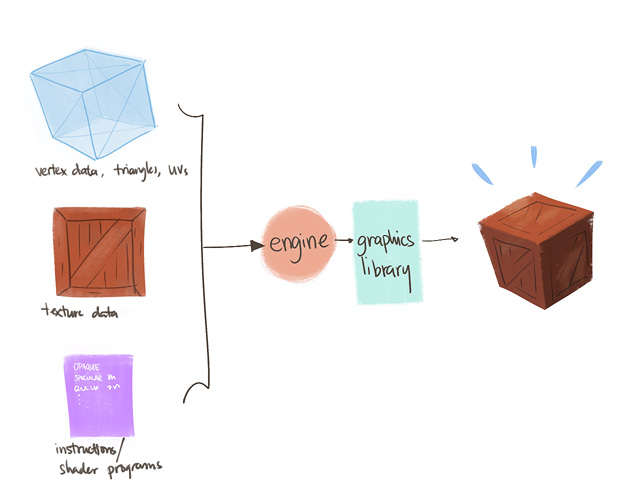 vertex data, triangles, UVs
texture data
OPAQUE
SPECULAR
instructions/
shader programs
engine
graphics
library